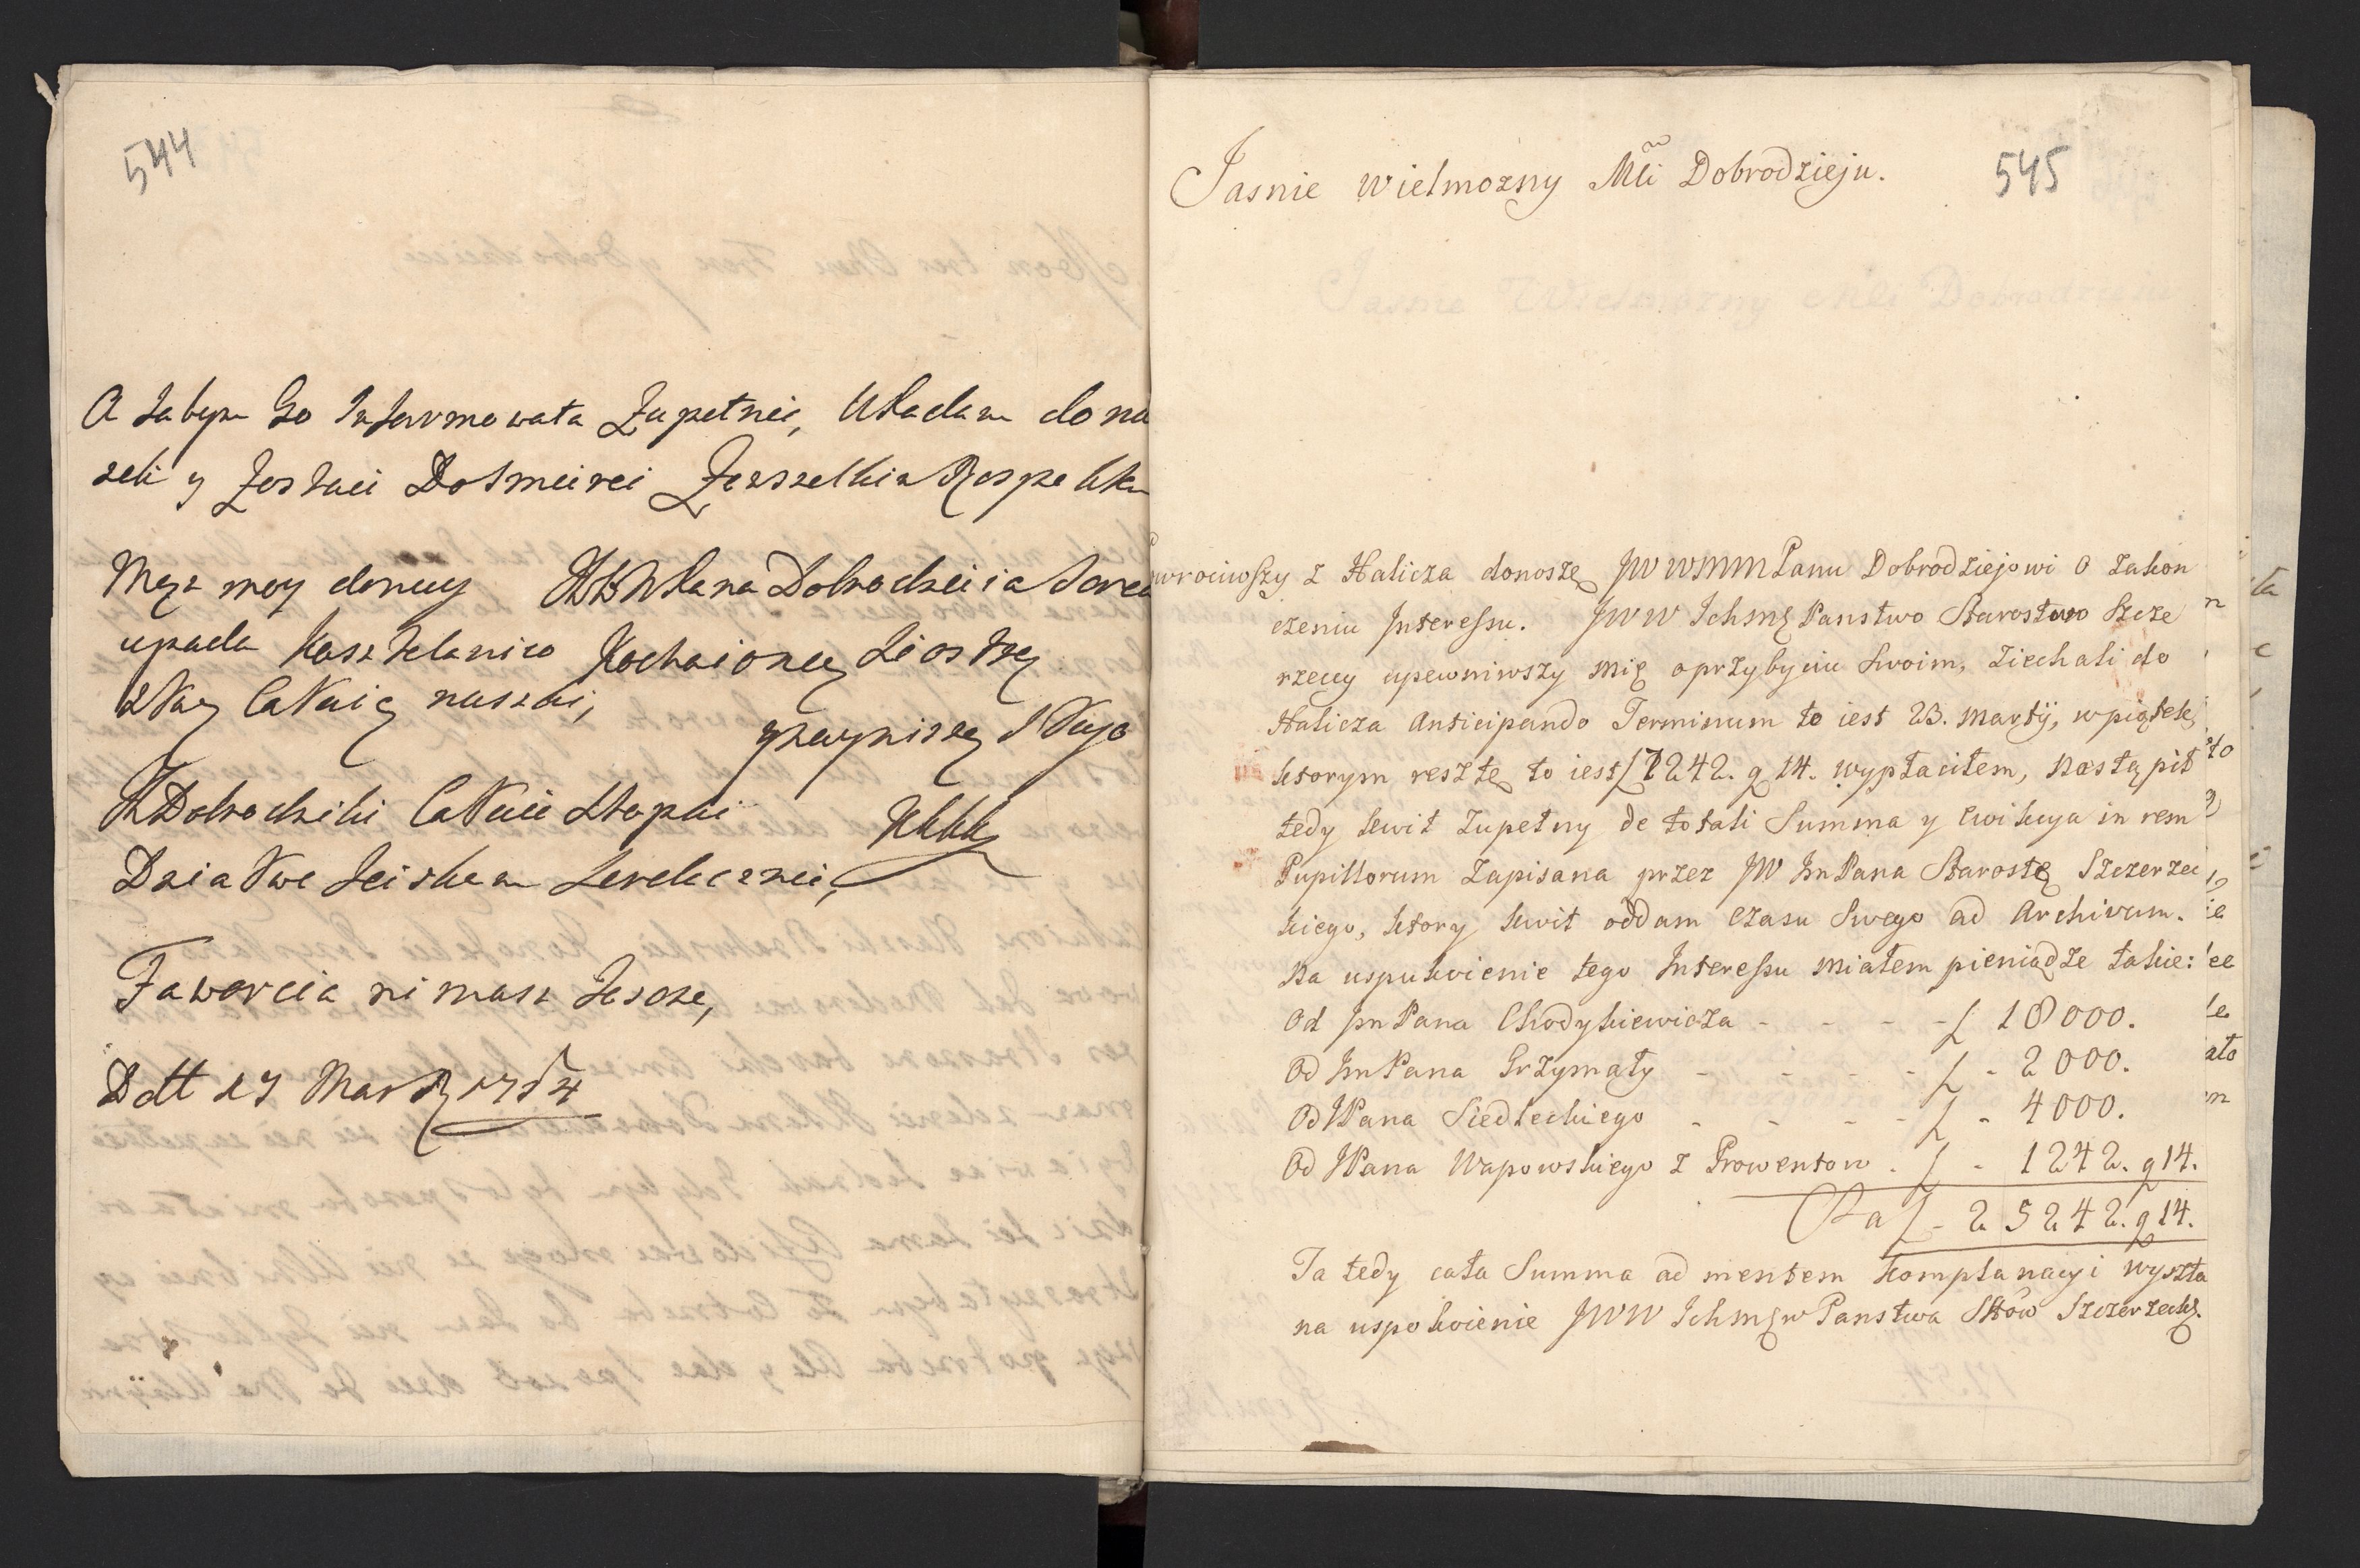 544
A Jabym Go Informowała Zupełnie, Układam do nu
zek y Zostaie Dośmierci Zewszelkim Respektem
Mąż moy donucy JWWPana Dobrodzieia
upada Kasztelanico Kochaioncy Siostrę
Całuię naszei,
y nayniszy Sługa
Dobrodziki Całuie Stopki
Dziatwe Sciskam Serdecznie,
Faworcia ni masz Jescze,
Dtt 27 Marty 1754
545
Jasnie Wielmozny Mći Dobrodzieju.
Powrociwszy z Halicza donoszę JWWMMPanu Dobrodziejowi o zakon
czeniu Interessu. JWW Ichmę Panstwo Starostwo Szcze
rzeccy upewniwszy mię o przybyciu Swoim, ziechali do
Halicza anticipando Terminum to iest 23. Martij, w piątek,
ktorym resztę to iest f 7242. g 14. wypłaciłem, nastąpił
tedy kwit zupełny de totali Summa y ewikcya in rem
Pupillorum zapisana przez JW Jm Pana Starostę Szczerzec
kiego, ktory kwit oddam czasu Swego ad Archivum.
Na uspukoienie tego Interessu miałem pieniądze takie:
Od Jm Pana Chodykiewicza - - - - f 18000.
Od Jm Pana Grzymały - - - - f - 2000.
Od JPana Siedleckiego - - - - f - 4000.
Od JPana Wapowskiego z Prowentow . f - 1242. g 14.
f - 25242. g 14.
Ta tedy cała Summa ad mentem komplanacyi wyszła
na uspokoienie JWW Ichmęw Panstwa Sttow Szczerzeckỹ.